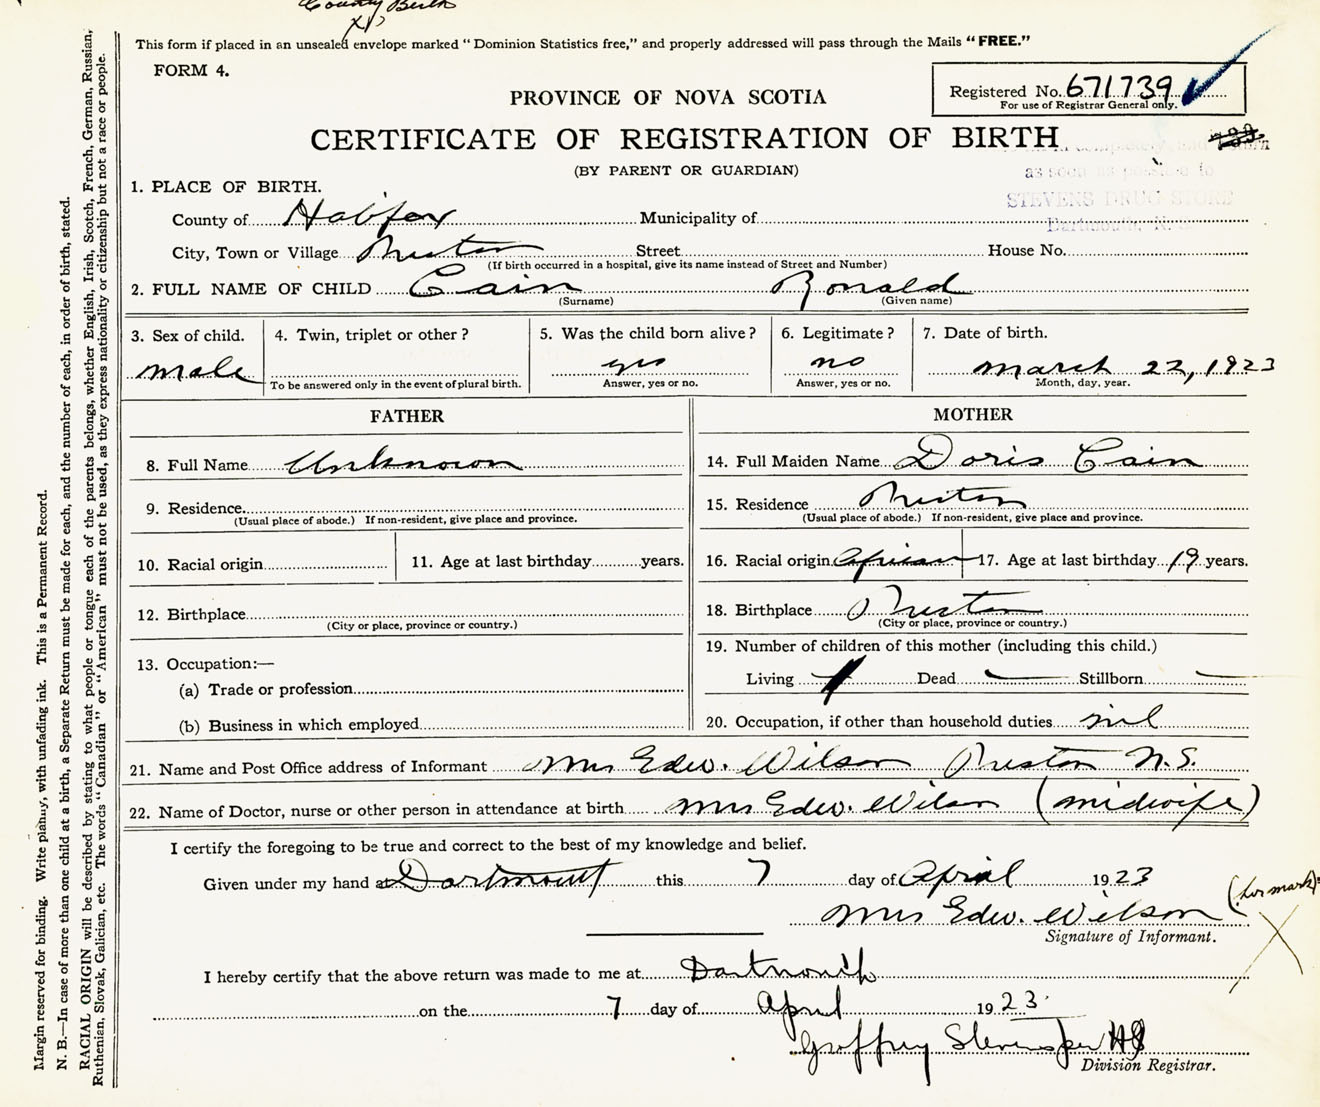 County Birth
This form if placed in an unsealed envelope marked “Dominion Statistics free,” and properly addressed will pass through the Mails “FREE.”
FORM 4.
Registered No. 671739
For use of Registrar General only.
PROVINCE OF NOVA SCOTIA
CERTIFICATE OF REGISTRATION OF BIRTH
(BY PARENT OR GUARDIAN)
as soon as possible to
STEVENS DRUG STORE
1. PLACE OF BIRTH.
County of Halifax Municipality of
City, Town or Village Preston Street House No.
(If birth occurred in a hospital, give its name instead of Street and Number)
2. FULL NAME OF CHILD Cain Ronald
(Surname) (Given name)
3. Sex of child. 4. Twin, triplet or other? 5. Was the child born alive? 6. Legitimate? 7. Date of birth.
male yes no march 22, 1923
To be answered only in the event of plural birth. Answer, yes or no. Answer, yes or no. Month, day, year.
FATHER MOTHER
8. Full Name Unknown
9. Residence
(Usual place of abode.) If non-resident, give place and province.
10. Racial origin 11. Age at last birthday years.
12. Birthplace
(City or place, province or country.)
13. Occupation:—
(a) Trade or profession
(b) Business in which employed
14. Full Maiden Name Doris Cain
15. Residence Preston
(Usual place of abode.) If non-resident, give place and province.
16. Racial origin African 17. Age at last birthday 19 years.
18. Birthplace Preston
(City or place, province or country.)
19. Number of children of this mother (including this child.)
Living 1 Dead — Stillborn —
20. Occupation, if other than household duties nil
21. Name and Post Office address of Informant Mrs Edw. Wilson Preston N.S.
22. Name of Doctor, nurse or other person in attendance at birth Mrs Edw. Wilson (midwife)
I certify the foregoing to be true and correct to the best of my knowledge and belief.
Given under my hand at Dartmouth this 7 day of April 1923
Mrs Edw. Wilson (her mark) X
Signature of Informant.
I hereby certify that the above return was made to me at Dartmouth
on the 7 day of April 1923
Geoffrey Stevens per HS
Division Registrar.
Margin reserved for binding. Write plainly, with unfading ink. This is a Permanent Record.
N. B.—In case of more than one child at a birth, a Separate Return must be made for each, and the number of each, in order of birth, stated.
RACIAL ORIGIN will be described by stating to what people or tongue each of the parents belongs, whether English, Irish, Scotch, French, German, Russian,
Ruthenian, Slovak, Galician, etc. The words “Canadian” or “American” must not be used, as they express nationality or citizenship but not a race or people.